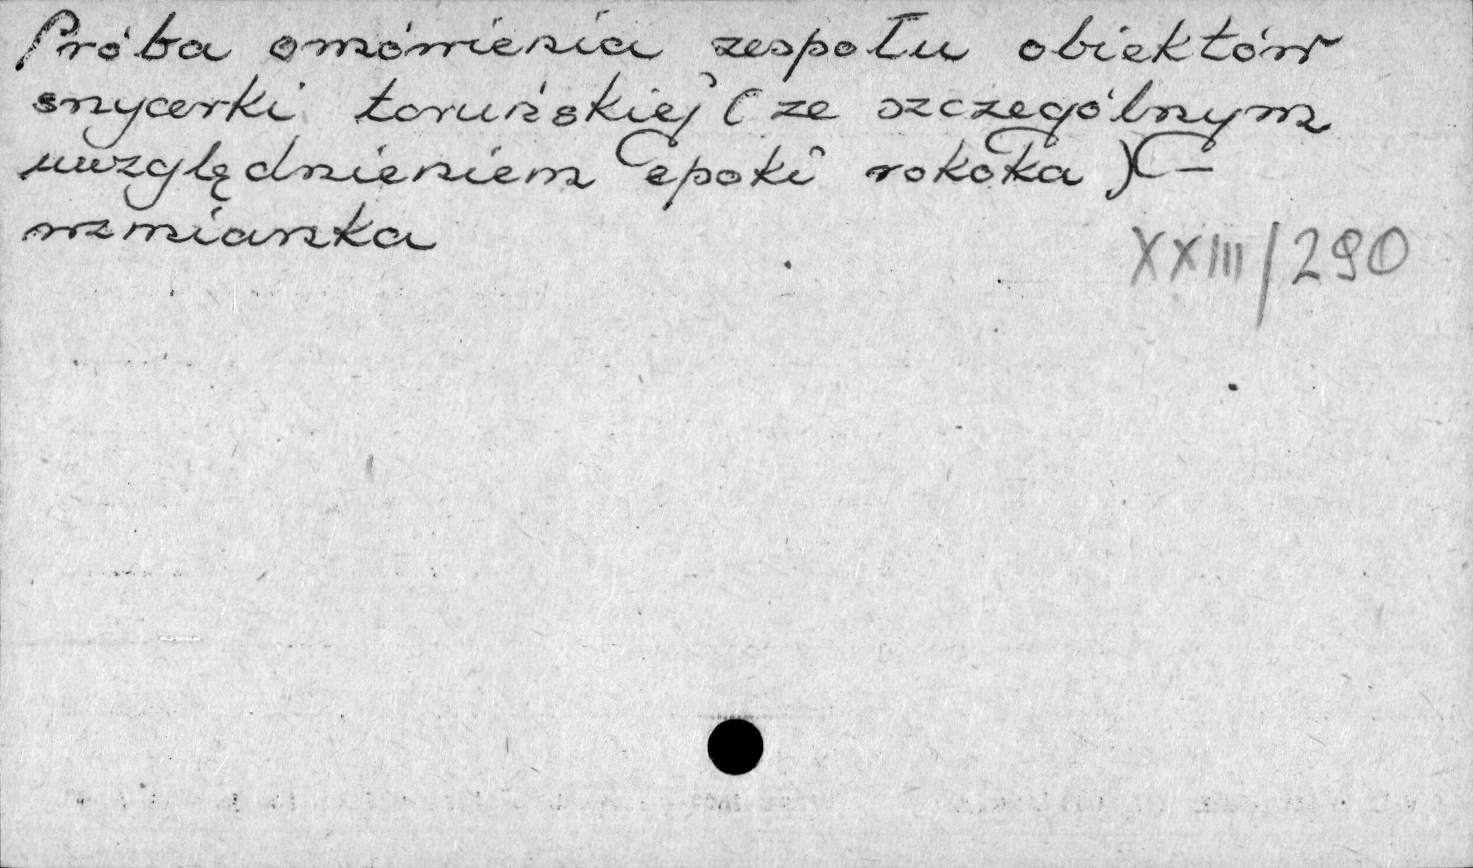 Próba omówienia zespołu obiektów
snycerki toruńskiej (ze szczególnym
uwzględnieniem epoki rokoka) –
wzmianka
XXIII/290